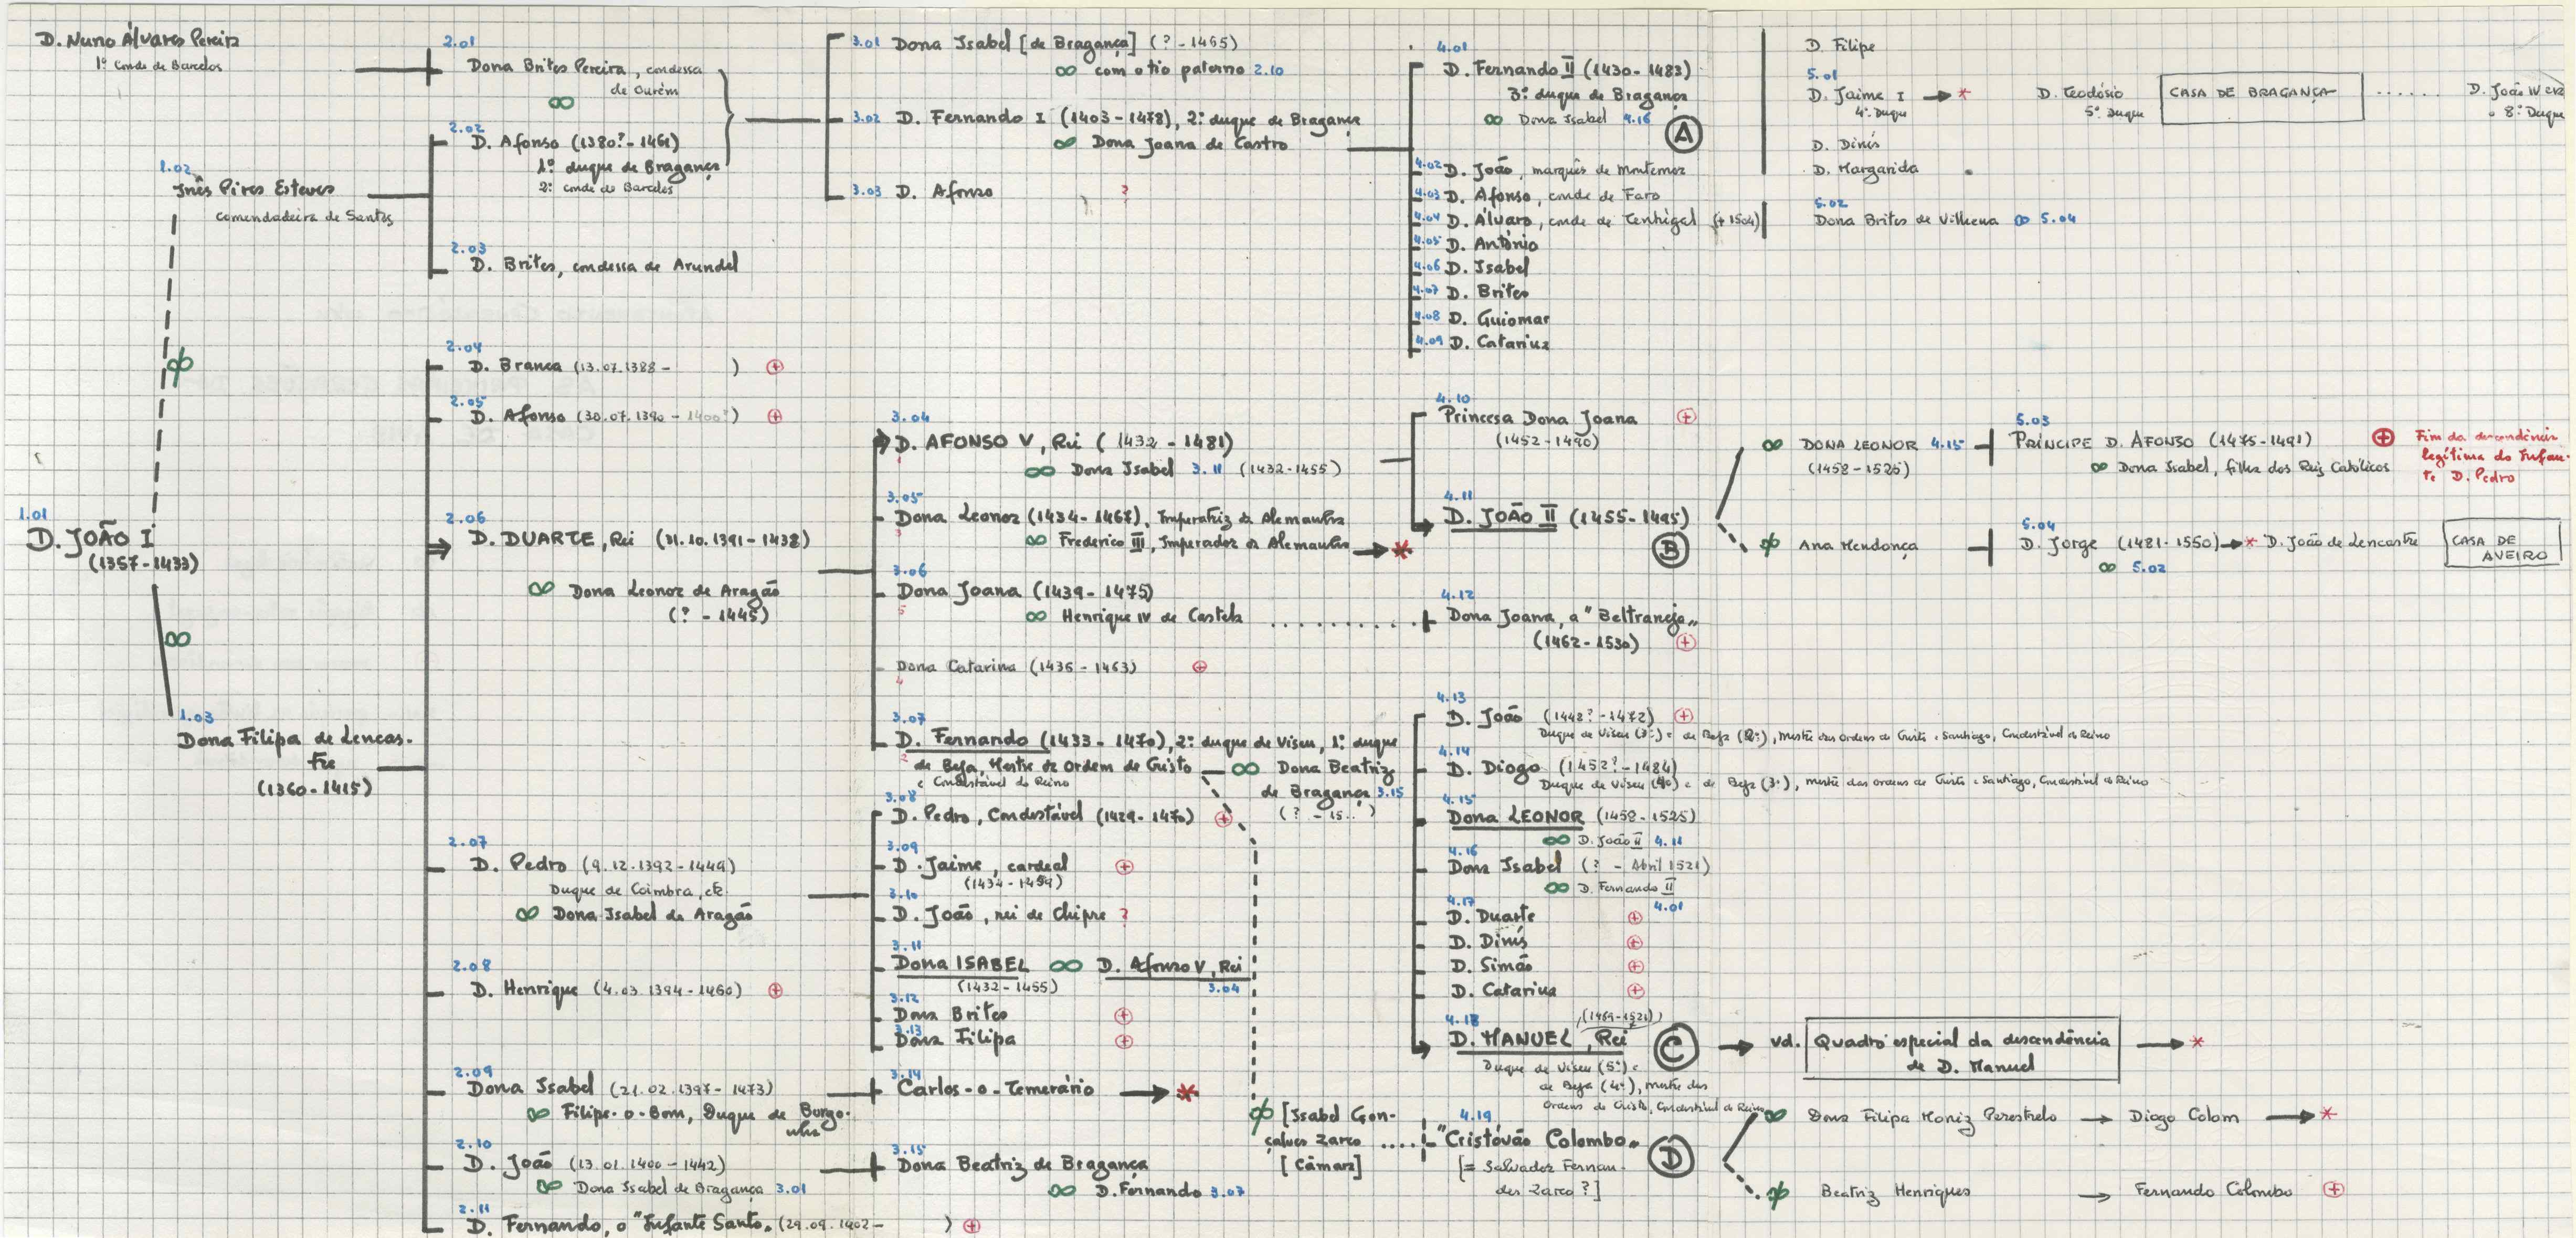 D. Nuno Álvares Pereira
1º Conde de Barcelos
2.01
Dona Brites Pereira, condessa
de Ourém
∞
2.02
D. Afonso (1380?-1461)
1º duque de Bragança
2º conde de Barcelos
1.02
Inês Pires Esteves
comendadeira de Santos
2.03
D. Brites, condessa de Arundel
3.01 Dona Isabel [de Bragança] (? - 1465)
∞ com o tio paterno 2.10
3.02 D. Fernando I (1403-1478), 2º duque de Bragança
∞ Dona Joana de Castro
3.03 D. Afonso ?
4.01
D. Fernando II (1430-1483)
3º duque de Bragança
∞ Dona Isabel 4.16
A
4.02 D. João, marquês de Montemor
4.03 D. Afonso, conde de Faro
4.04 D. Álvaro, conde de Tentúgal (+1504)
4.05 D. António
4.06 D. Isabel
4.07 D. Brites
4.08 D. Guiomar
4.09 D. Catarina
D. Filipe
5.01
D. Jaime I → *
4º Duque
D. Teodósio
5º Duque
CASA DE BRAGANÇA ......
D. João IV
8º Duque
D. Dinis
D. Margarida
5.02
Dona Brites de Vilhena ∞ 5.04
1.01
D. JOÃO I
(1357-1433)
1.03
Dona Filipa de Lencas-
tre
(1360-1415)
2.04
D. Branca (13.07.1388 - ) ⊕
2.05
D. Afonso (30.07.1390 - 1400?) ⊕
2.06
D. DUARTE, Rei (31.10.1391-1438)
∞ Dona Leonor de Aragão
(? - 1445)
2.07
D. Pedro (9.12.1392-1449)
Duque de Coimbra, etc.
∞ Dona Isabel de Aragão
2.08
D. Henrique (4.03.1394-1460) ⊕
2.09
Dona Isabel (21.02.1397-1473)
∞ Filipe-o-Bom, Duque de Borgo-
nha
2.10
D. João (13.01.1400-1442)
∞ Dona Isabel de Bragança 3.01
2.11
D. Fernando, o "Infante Santo" (29.09.1402 - ) ⊕
3.04
D. AFONSO V, Rei (1432-1481)
1
∞ Dona Isabel 3.11 (1432-1455)
3.05
Dona Leonor (1434-1467), Imperatriz da Alemanha
3
∞ Frederico III, Imperador da Alemanha → *
3.06
Dona Joana (1439-1475)
5
∞ Henrique IV de Castela ..........
Dona Catarina (1436-1463) ⊕
4
3.07
D. Fernando (1433-1470), 2º duque de Viseu, 1º duque
2
de Beja, Mestre da Ordem de Cristo — ∞ Dona Beatriz
e Condestável do Reino
de Bragança 3.15
(? - 15..)
3.08
D. Pedro, Condestável (1429-1470) ⊕
3.09
D. Jaime, cardeal ⊕
(1434-1459)
3.10
D. João, rei de Chipre ?
3.11
Dona ISABEL ∞ D. Afonso V, Rei
(1432-1455) 3.04
3.12
Dona Brites ⊕
3.13
Dona Filipa ⊕
3.14
Carlos-o-Temerário → *
3.15
Dona Beatriz de Bragança
∞ D. Fernando 3.07
4.10
Princesa Dona Joana ⊕
(1452-1490)
4.11
D. JOÃO II (1455-1495)
B
4.12
Dona Joana, a "Beltraneja"
(1462-1530) ⊕
4.13
D. João (1442?-1472) ⊕
Duque de Viseu (3º) e de Beja (2º), mestre das ordens de Cristo e Santiago, Condestável do Reino
4.14
D. Diogo (1452?-1484)
Duque de Viseu (4º) e de Beja (3º), mestre das ordens de Cristo e Santiago, Condestável do Reino
4.15
Dona LEONOR (1458-1525)
∞ D. João II 4.11
4.16
Dona Isabel (? - Abril 1521)
∞ D. Fernando II
4.01
4.17
D. Duarte ⊕
D. Dinis ⊕
D. Simão ⊕
D. Catarina ⊕
4.18
(1469-1521)
D. MANUEL, Rei C
Duque de Viseu (5º) e
de Beja (4º), mestre das
Ordens de Cristo, Condestável do Reino
[Isabel Gon-
çalves Zarco ....
[Câmara]
4.19
"Cristóvão Colombo"
D
[= Salvador Fernan-
des Zarco?]
∞ DONA LEONOR 4.15
(1458-1525)
5.03
PRÍNCIPE D. AFONSO (1475-1491) ⊕
∞ Dona Isabel, filha dos Reis Católicos
Fim da descendência
legítima do Infan-
te D. Pedro
Ana Mendonça
5.04
D. Jorge (1481-1550) → * D. João de Lencastre
∞ 5.02
CASA DE
AVEIRO
→ vd. Quadro especial da descendência → *
de D. Manuel
∞ Dona Filipa Moniz Perestrelo → Diogo Colom → *
Beatriz Henriques → Fernando Colombo ⊕